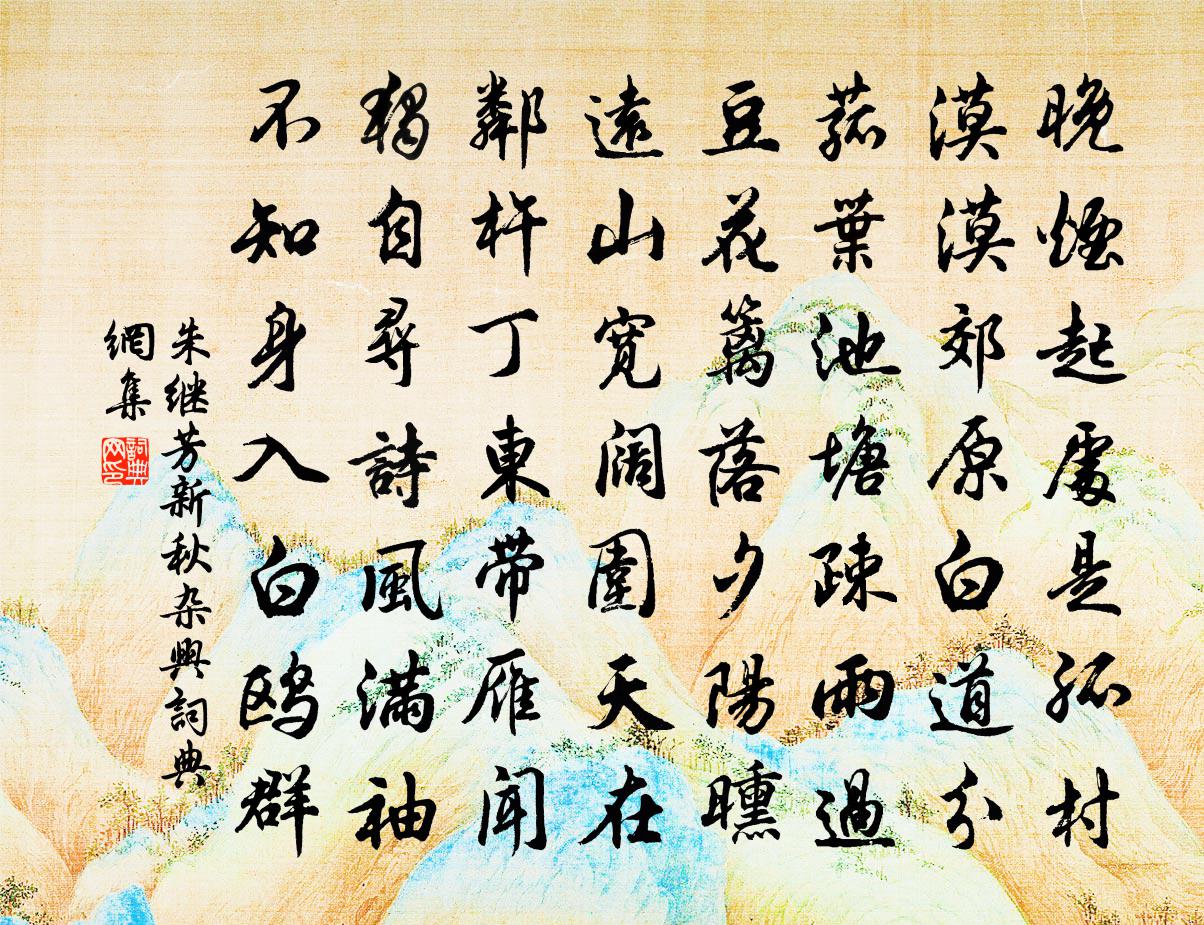 晚煙起處是孤村
漠漠郊原白道分
菰葉池塘疎雨過
豆花籬落夕陽曛
遠山寬闊圍天在
鄰杵丁東帶雁闻
獨自尋詩風滿袖
不知身入白鸥群
朱继芳新秋杂興詞典
網集
詞典
网印